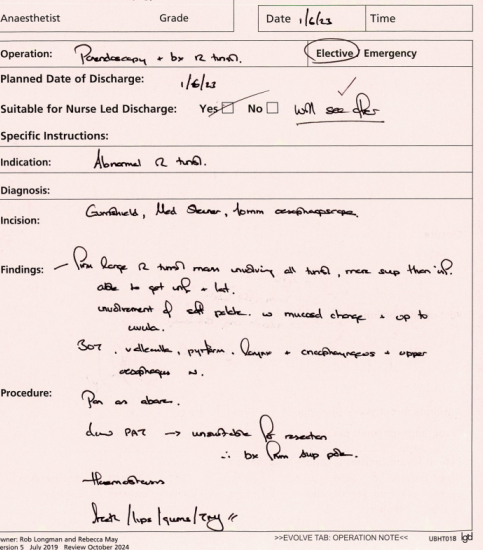 Anaesthetist Grade Date 1/6/23 Time
Operation: Panendoscopy + bx R tonsil. Elective Emergency
Planned Date of Discharge: 1/6/23
Suitable for Nurse Led Discharge: Yes No Will see after
Specific Instructions:
Indication: Abnormal R tonsil.
Diagnosis:
Incision: Gumshield, Med Steiner, 10mm oesophagoscope.
Findings: — Firm large R tonsil mass involving all tonsil, more sup than inf.
able to get inf + lat.
involvement of soft palate. w mucosal change + up to
uvula.
BOT, vallecula, pyriform, larynx + cricopharyngeus + upper
oesophagus N.
Procedure: Pan as above.
PAT → unsuitable for resection
∴ bx from sup pole.
Haemostasis
teeth / lips / gums / TMJ
wner: Rob Longman and Rebecca May
ersion 5 July 2019 Review October 2024
>>EVOLVE TAB: OPERATION NOTE<< UBHT018 lgd